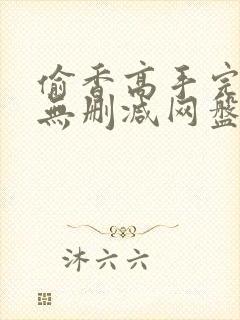 偷香高手完
無删减网盘
沐六六